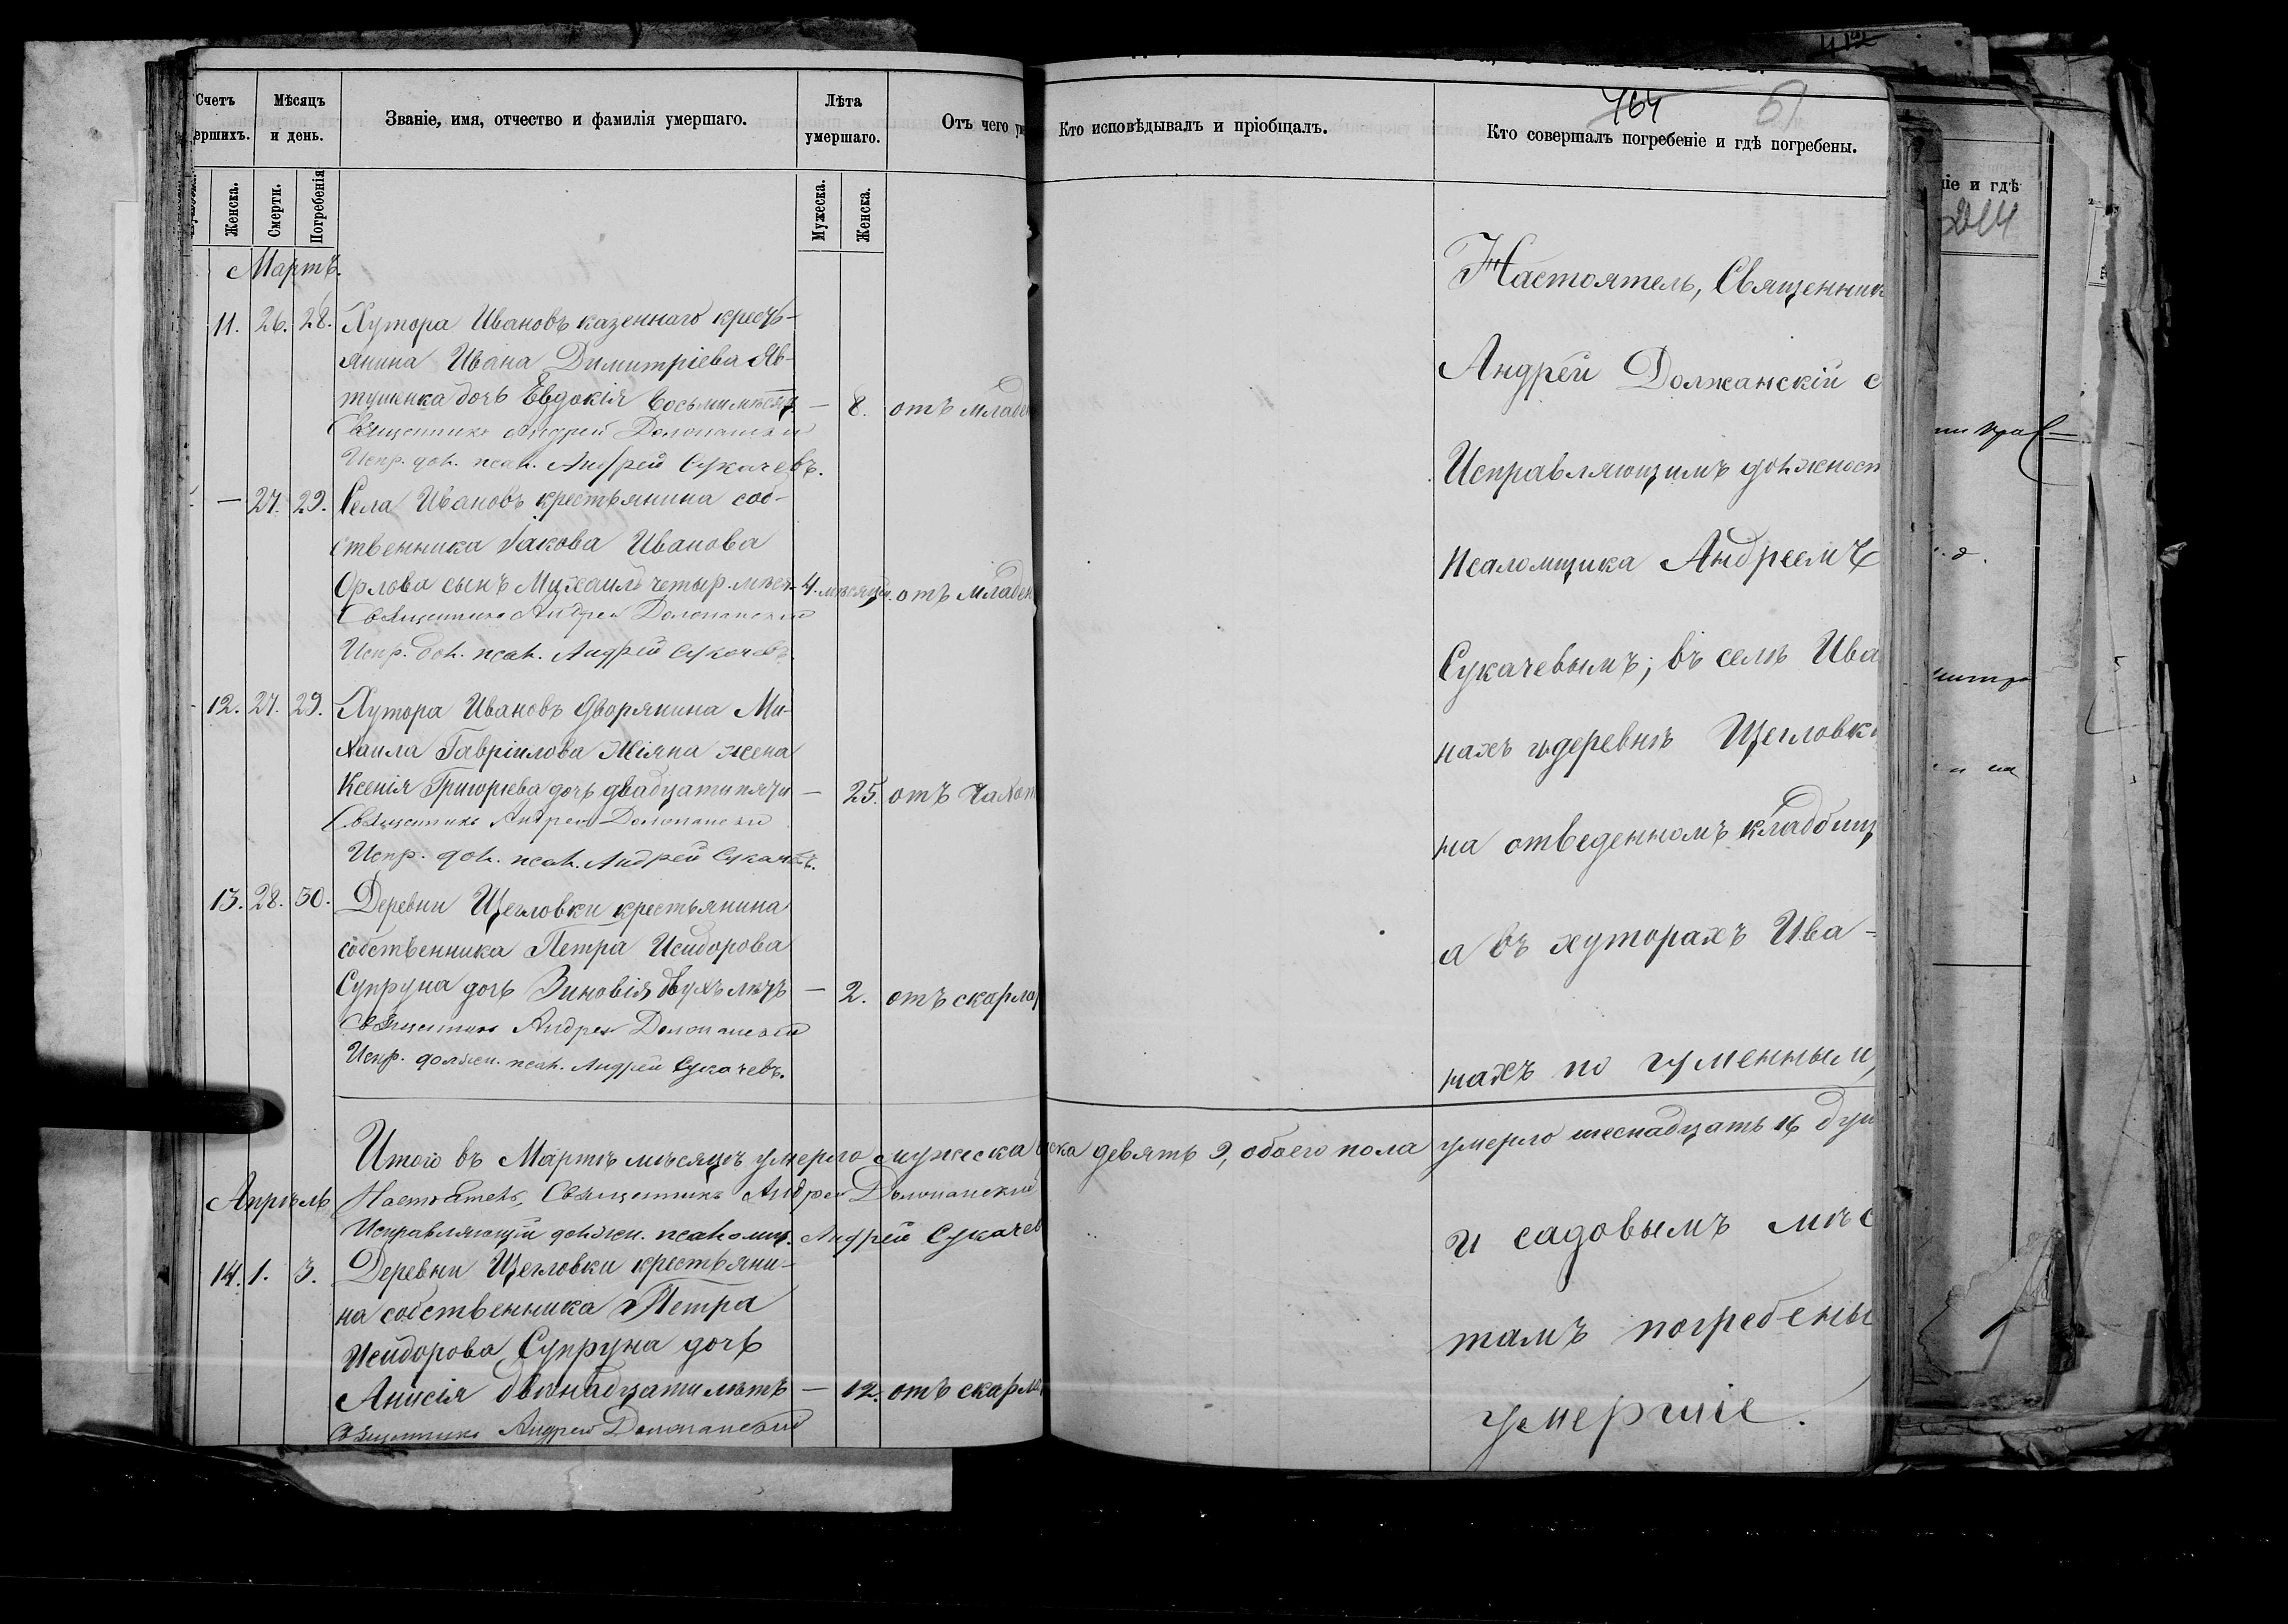 Счетъ
ершихъ.
Мѣсяцъ
и день.
Званіе, имя, отчество и фамилія умершаго.
Лѣта
умершаго.
Отъ чего
Женска.
Смерти.
Погребенія
Мужеска.
Женска.
Мартъ.
11. 26. 28. Хутора Ивановъ казеннаго кресть-
янина Ивана Димитріева Яв-
тушенка дочь Евдокія восьмимѣсяч. — 8. отъ младен
Священникъ Андрей Должанскій
Испр. дол. псал. Андрей Сукачевъ.
— 27. 29. Села Ивановъ крестьянина соб-
ственника Іакова Иванова
Орлова сынъ Михаилъ четыр. мѣсяч. 4. мѣсяцы. отъ младен
Священникъ Андрей Должанскій
Испр. дол. псал. Андрей Сукачевъ.
12. 27. 29. Хутора Ивановъ дворянина Ми-
хаила Гавріилова жена
Ксенія Григорьева дочь двадцати пяти — 25. отъ чахот
Священникъ Андрей Должанскій
Испр. дол. псал. Андрей Сукачевъ.
13. 28. 30. Деревни Щегловки крестьянина
собственника Петра Исидорова
Супруна дочь Зиновія двухъ лѣтъ — 2. отъ скарла
Священникъ Андрей Должанскій
Испр. должн. псал. Андрей Сукачевъ.
Итого въ Мартѣ мѣсяцѣ умерло мужеска
Апрѣль
Настоятель, Священникъ Андрей Должанскій
Исправляющій должн. псаломщ. Андрей Сукачев
14. 1. 3. Деревни Щегловки крестьяни-
на собственника Петра
Исидорова Супруна дочь
Анисія двѣнадцати лѣтъ — 12. отъ скарла
Священникъ Андрей Должанскій
412
464
51
Кто исповѣдывалъ и пріобщалъ.
Кто совершалъ погребеніе и гдѣ погребены.
Настоятель, Священник
Андрей Должанскій с
Исправляющимъ должност
Псаломщика Андреемъ
Сукачевымъ; въ селѣ Ива
нахъ и деревнѣ Щегловкѣ
на отведенномъ кладбищ
а въ хуторахъ Ива-
нахъ по гуменным
ска девять 9, обоего пола умерло шеснадцать 16 душ
и садовымъ мѣс
тамъ погребены
умершіе.
іе и гдѣ
214